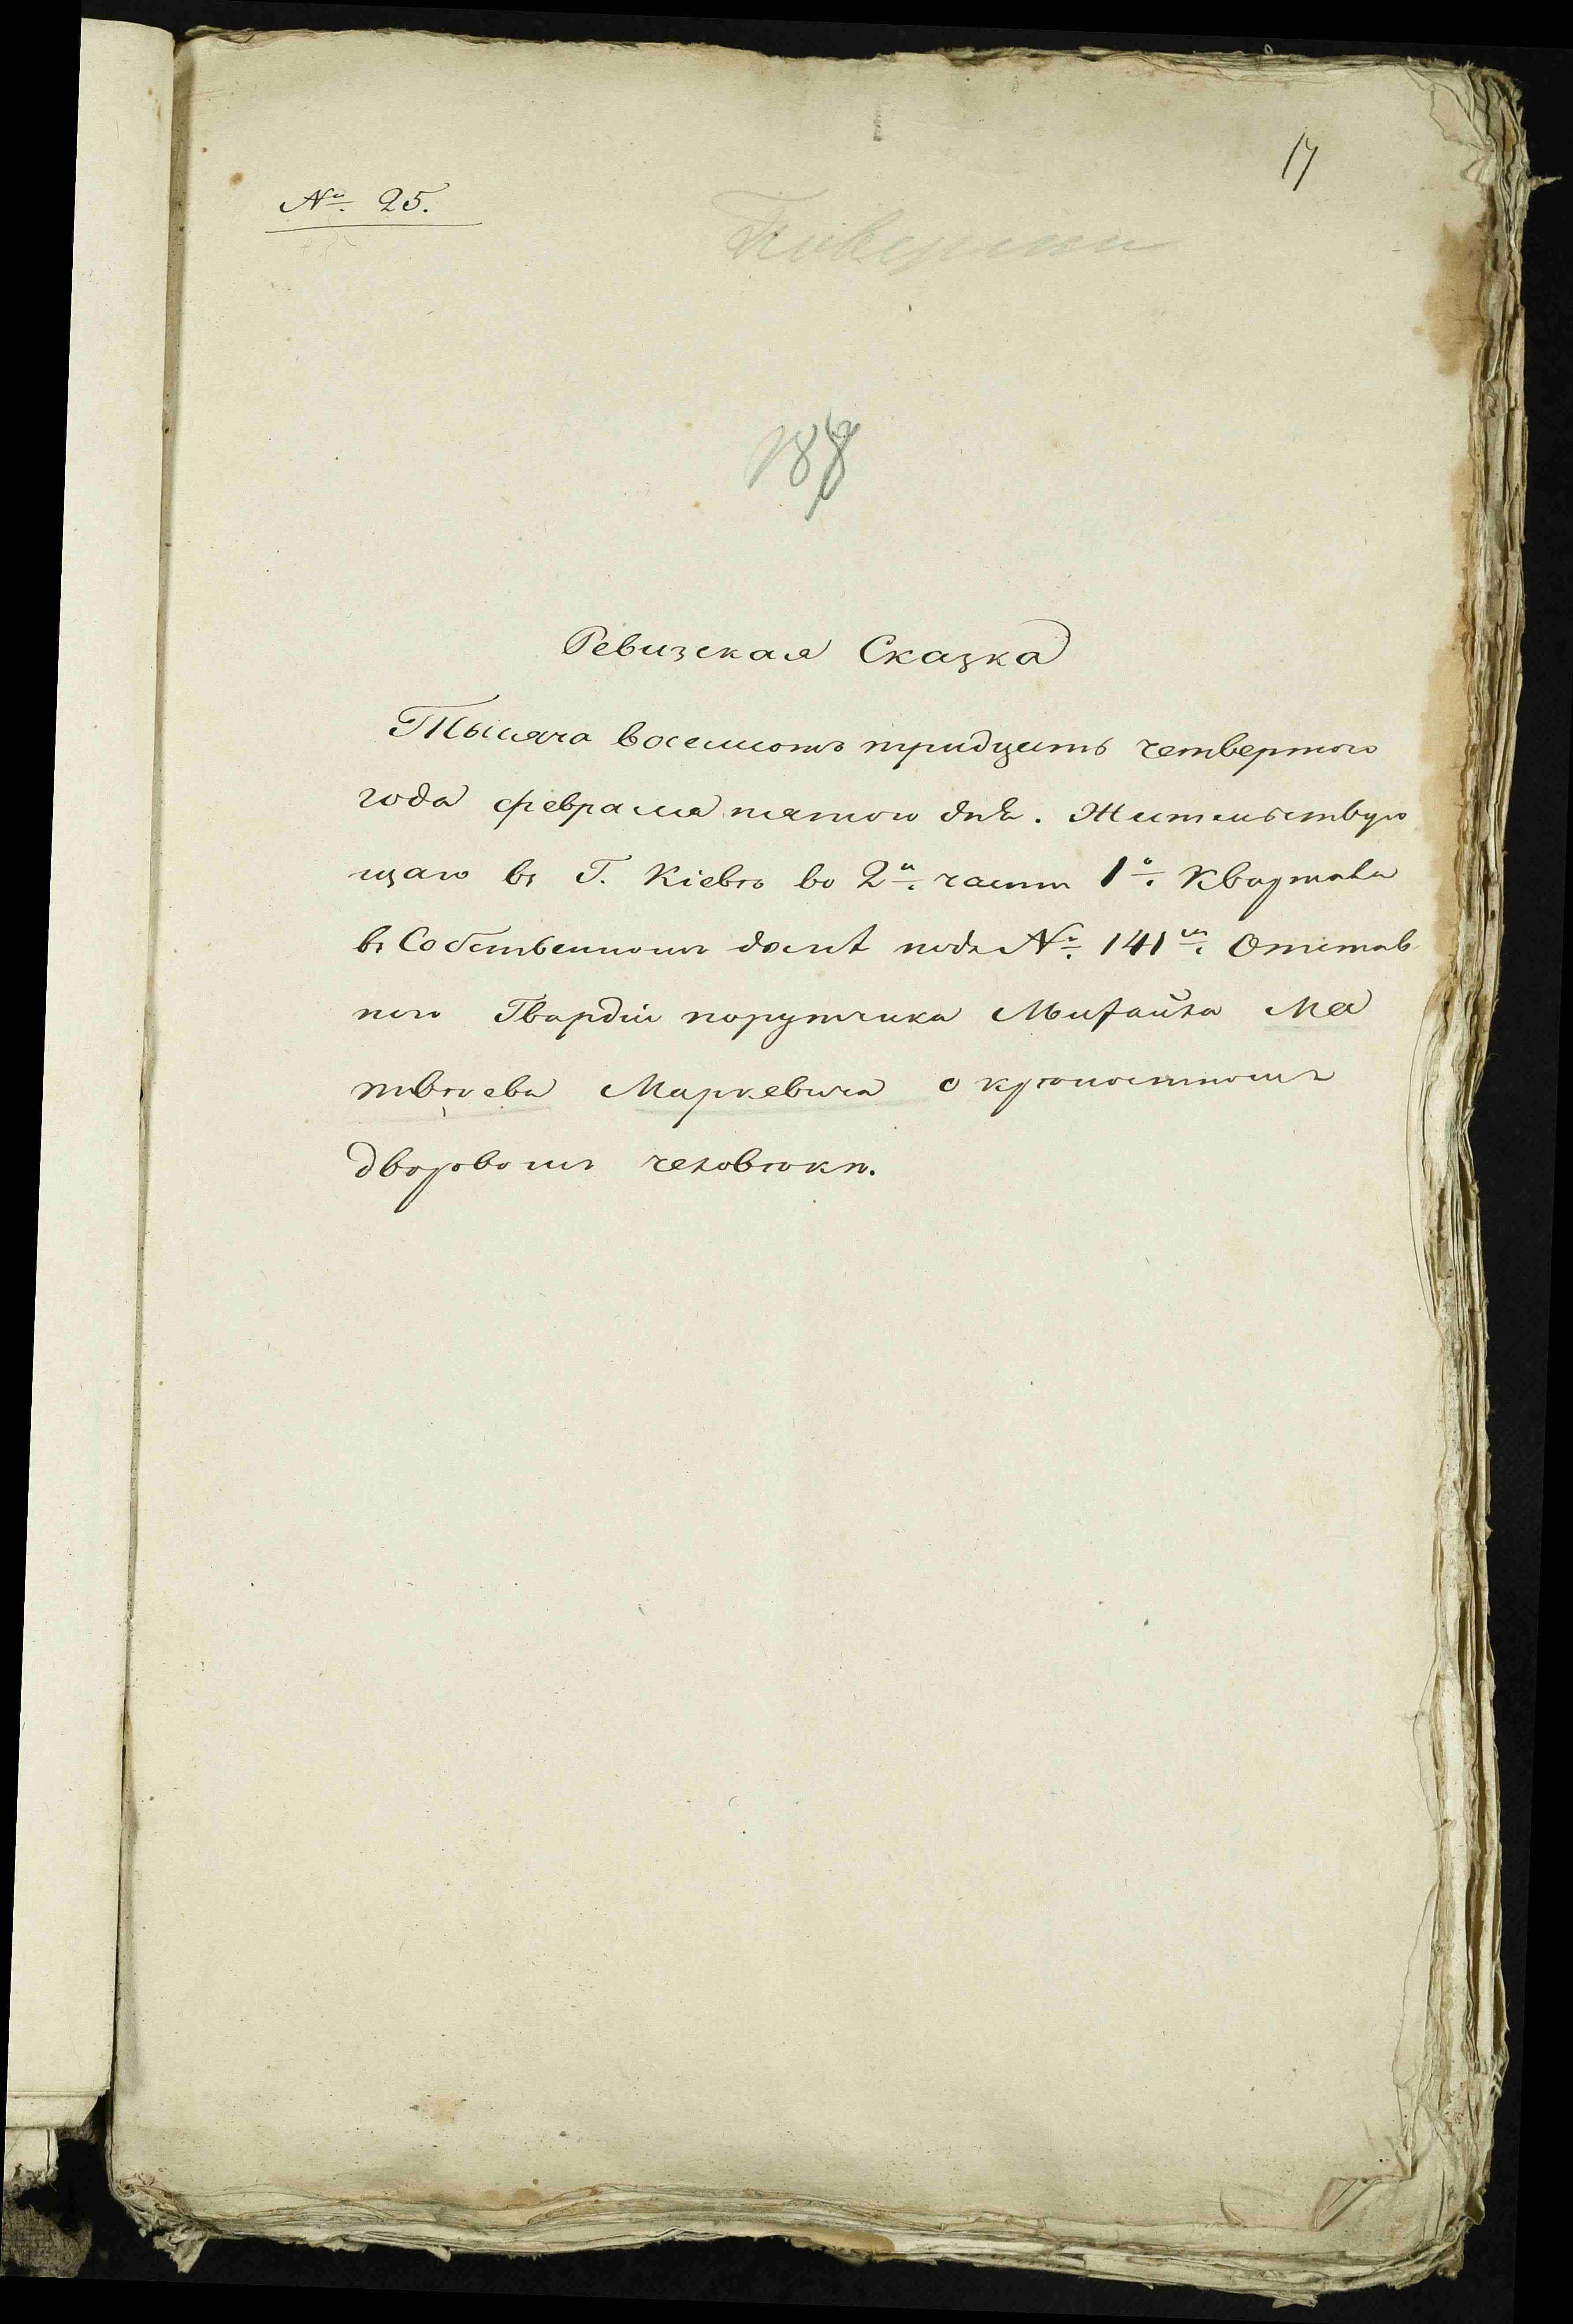 17
№ 25.
188
Ревизская Сказка
Тысяча восемьсотъ тридцать четвертого
года февраля пятого дня. Жительствую
щаго въ Г. Кіевѣ во 2й. части 1о. Квартала
въ Собственномъ домѣ подъ №. 141м. Отстав
ного Гвардіи порутчика Михайла Ма
твѣева Маркевича о крѣпостномъ
дворовомъ человѣкѣ.